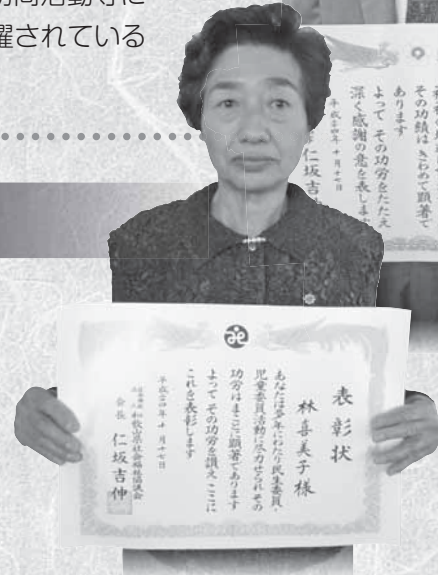 躍されている
その功績は きわめて顕著で
あります
よって その功労をたたえ
深く感謝の意を表します
平成二十四年 十月十七日
仁坂吉
表彰状
林喜美子様
あなたは多年にわたり民生委員・
児童委員活動に尽力せられ その
功労はまことに顕著であります
よって その功労を讃え ここに
これを表彰します
平成二十四年 十月十七日
和歌山県社会福祉協議会
会長 仁坂吉伸